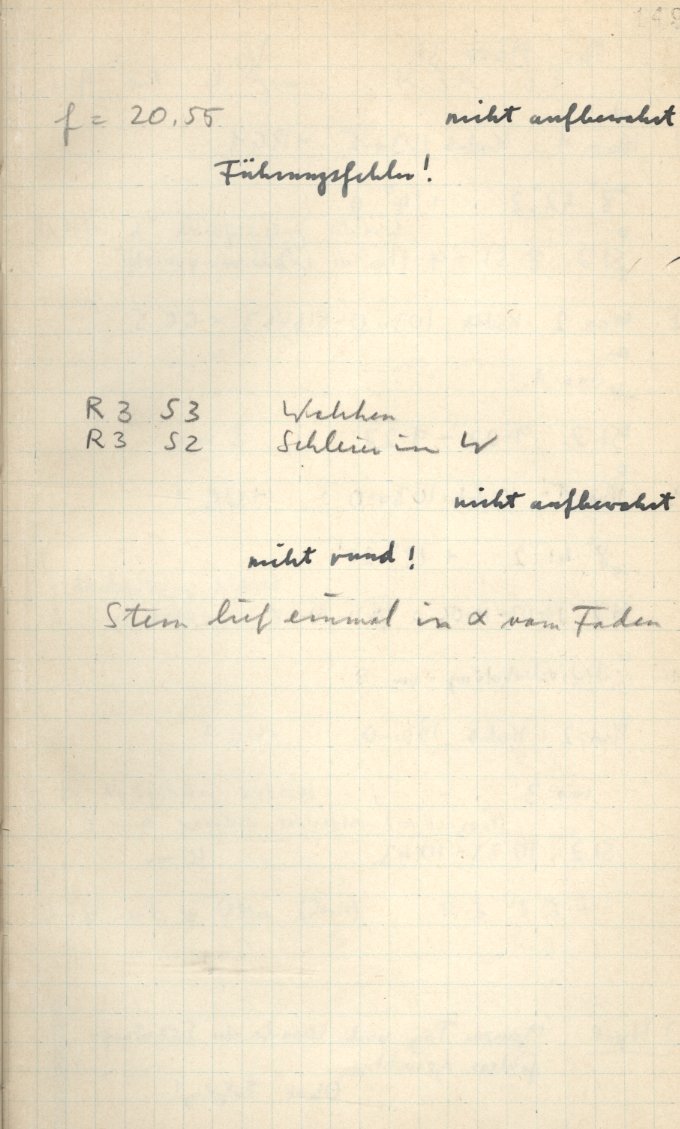 f = 20.55 nicht aufbewahrt
Führungsfehler!
R3 S3 Wolken
R3 S2 Schleier in W
nicht aufbewahrt
nicht rund!
Stern lief einmal in α vom Faden